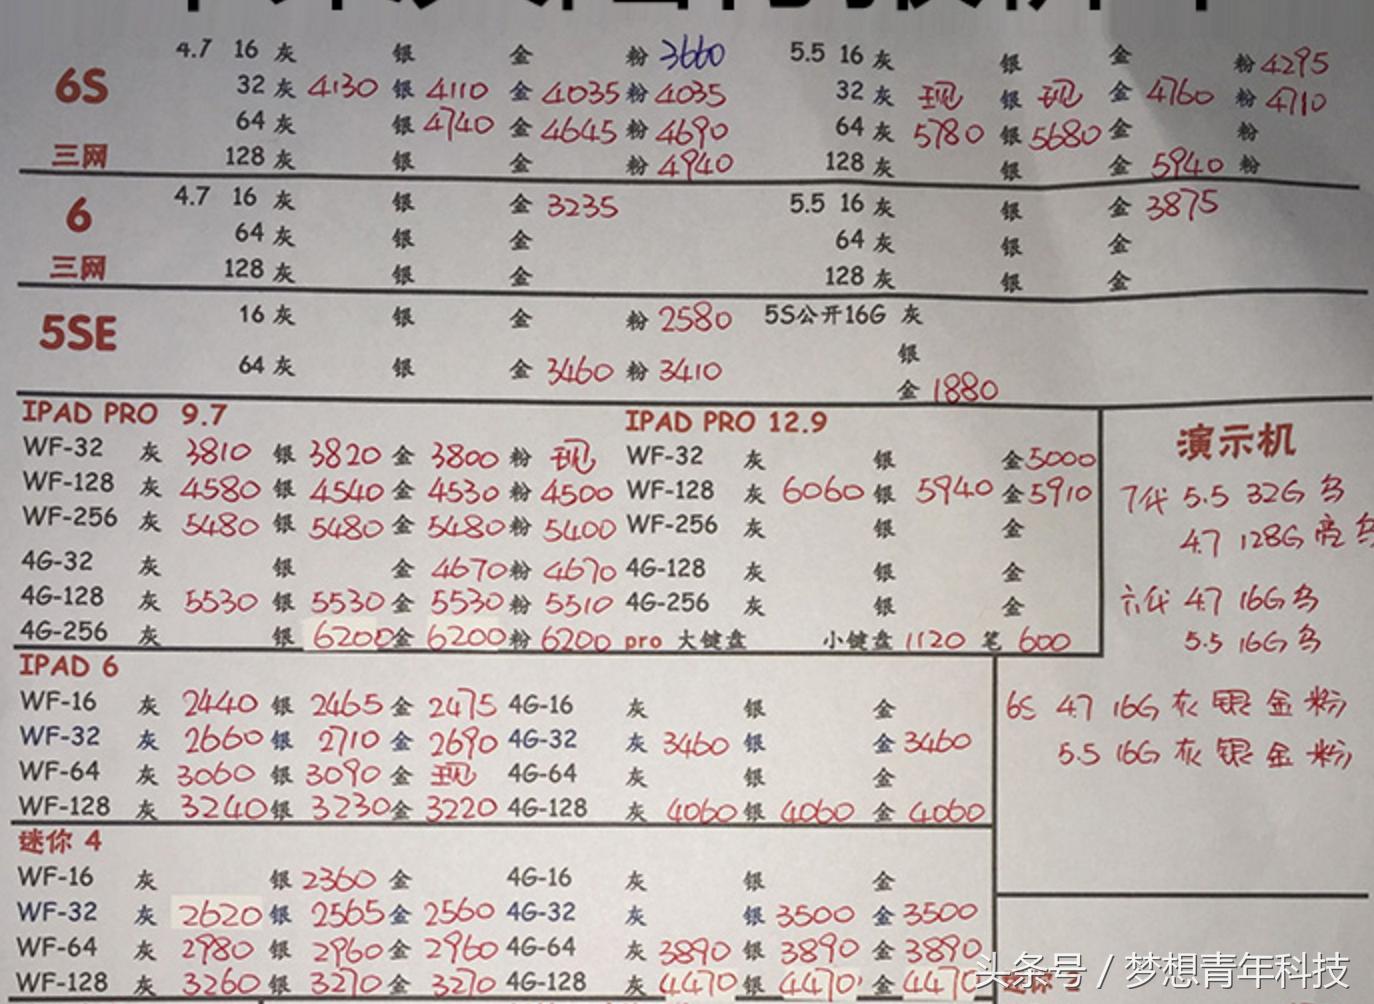 4.7 16 灰 银 金 粉 3660 5.5 16 灰 银 金 粉 4295
6S 32 灰 4130 银 4110 金 4035 粉 4035 32 灰 现 银 现 金 4760 粉 4710
64 灰 银 4740 金 4645 粉 4690 64 灰 5780 银 5680 金 粉
三网 128 灰 银 金 粉 4940 128 灰 银 金 5940 粉
6 4.7 16 灰 银 金 3235 5.5 16 灰 银 金 3875
64 灰 银 金 64 灰 银 金
三网 128 灰 银 金 128 灰 银 金
5SE 16 灰 银 金 粉 2580 5S公开16G 灰
银
64 灰 银 金 3460 粉 3410
金 1880
IPAD PRO 9.7 IPAD PRO 12.9
WF-32 灰 3810 银 3820 金 3800 粉 现 WF-32 灰 银 金 5000
WF-128 灰 4580 银 4540 金 4530 粉 4500 WF-128 灰 6060 银 5940 金 5910
WF-256 灰 5480 银 5480 金 5480 粉 5400 WF-256 灰 银 金
4G-32 灰 银 金 4670 粉 4670 4G-128 灰 银 金
4G-128 灰 5530 银 5530 金 5530 粉 5510 4G-256 灰 银 金
4G-256 灰 银 6200 金 6200 粉 6200 pro 大键盘 小键盘 1120 笔 600
演示机
7代 5.5 32G 乌
4.7 128G 亮 乌
六代 4.7 16G 乌
5.5 16G 乌
6S 4.7 16G 灰 银 金 粉
5.5 16G 灰 银 金 粉
IPAD 6
WF-16 灰 2440 银 2465 金 2475 4G-16 灰 银 金
WF-32 灰 2660 银 2710 金 2690 4G-32 灰 3460 银 金 3460
WF-64 灰 3060 银 3090 金 现 4G-64 灰 银 金
WF-128 灰 3240 银 3230 金 3220 4G-128 灰 4060 银 4060 金 4060
迷你 4
WF-16 灰 银 2360 金 4G-16 灰 银 金
WF-32 灰 2620 银 2565 金 2560 4G-32 灰 银 3500 金 3500
WF-64 灰 2980 银 2960 金 2960 4G-64 灰 3890 银 3890 金 3890
WF-128 灰 3260 银 3270 金 3270 4G-128 灰 4470 银 4470 金 4470
头条号 / 梦想青年科技